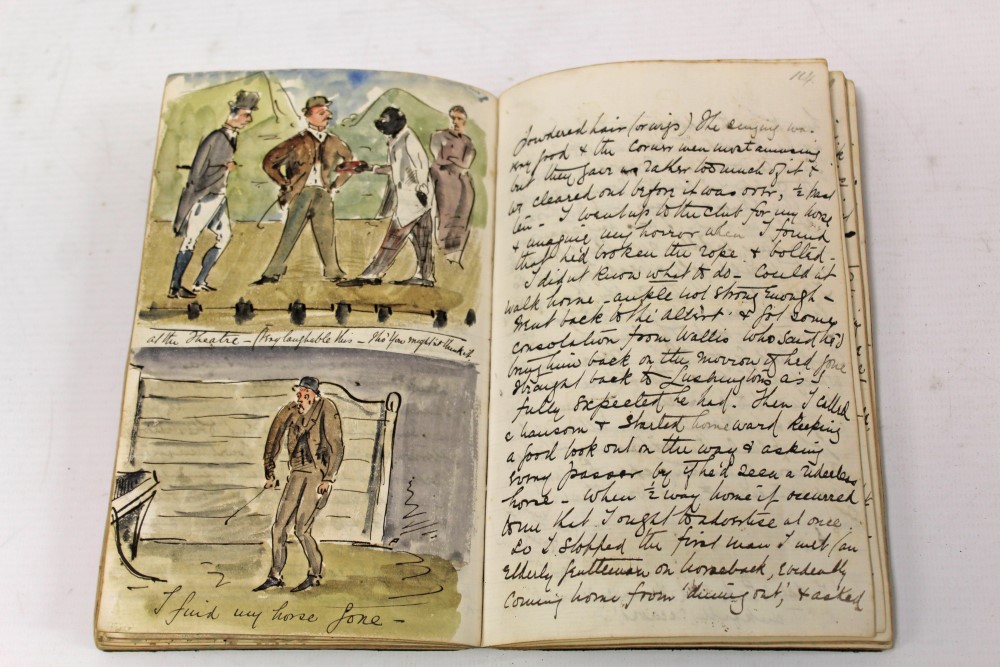 at the Theatre - (Very laughable this - tho' you mightn't think it
I find my horse gone -
114.
Powdered hair (or wigs) The singing wa.
very good & the corner men most amusing
but they gave us rather too much of it &
we cleared out before it was over, ½ past
ten - I went up to the club for my horse
& imagine my horror when I found
that he'd broken the rope & bolted -
I didn't know what to do - Couldn't
walk home - ankle not strong enough -
Went back to the Albert & got some
consolation from Wallis who said he'd
bring him back on the morrow if he'd gone
straight back to Lushington's as I
fully expected he had. Then I called
a hansom & started homeward keeping
a good look out on the way & asking
every passer by if he'd seen a riderless
horse - When ½ way home it occurred
to me that I ought to advertise at once
So I stopped the first man I met (an
elderly gentleman on horseback, evidently
coming home from 'dining out', & asked